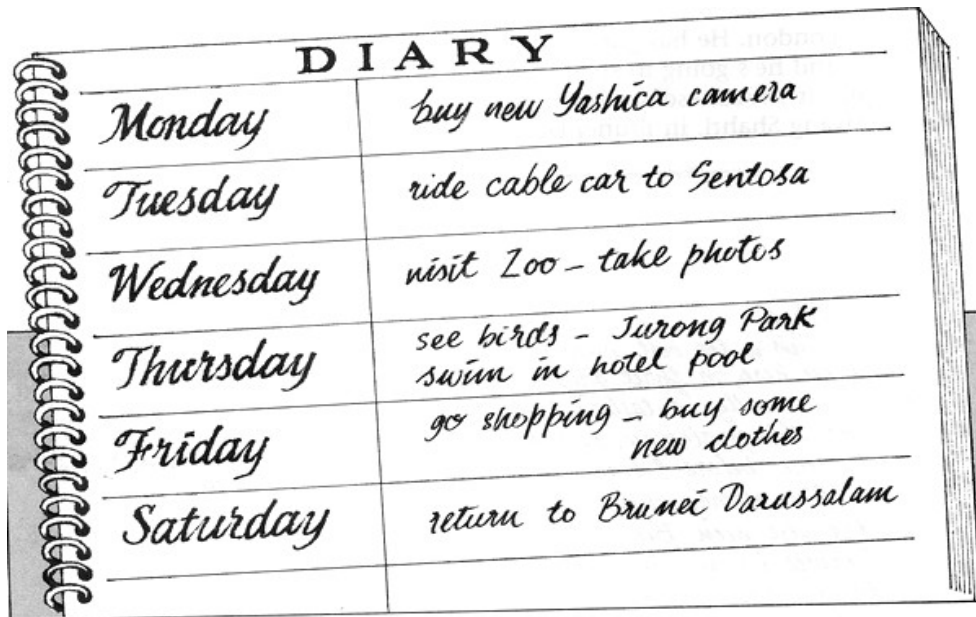 DIARY
Monday buy new Yashica camera
Tuesday ride cable car to Sentosa
Wednesday visit Zoo - take photos
Thursday see birds - Jurong Park
swim in hotel pool
Friday go shopping - buy some
new clothes
Saturday return to Brunei Darussalam